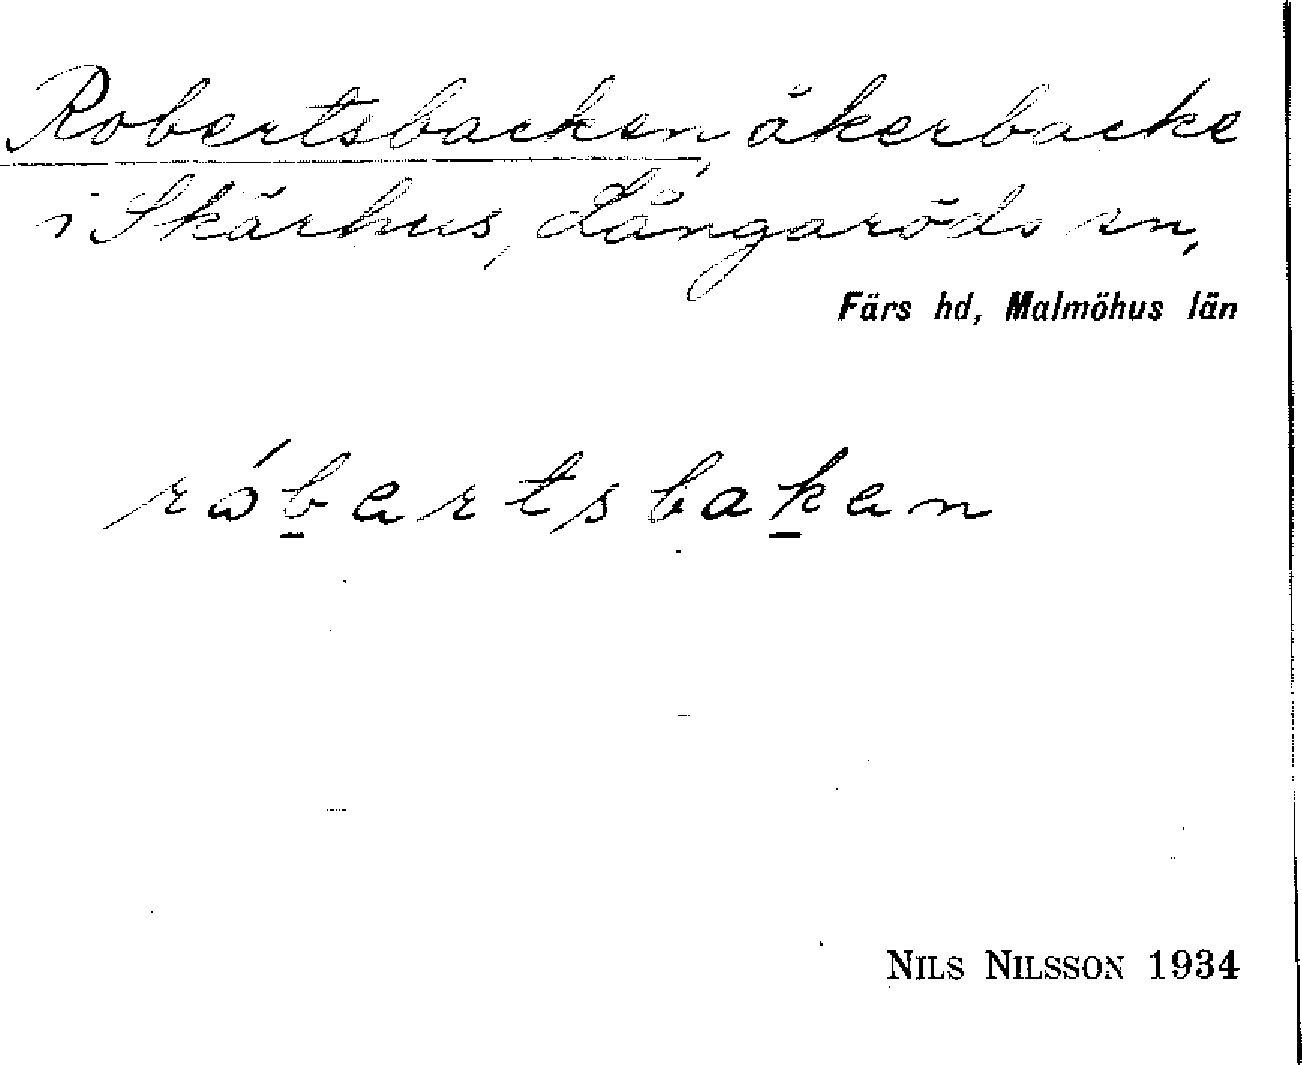 Robertsbacken, åkerbacke
i Skärhus, Långaröds sn,
Färs hd, Malmöhus län
ró̱bertsbak̲en
NILS NILSSON 1934